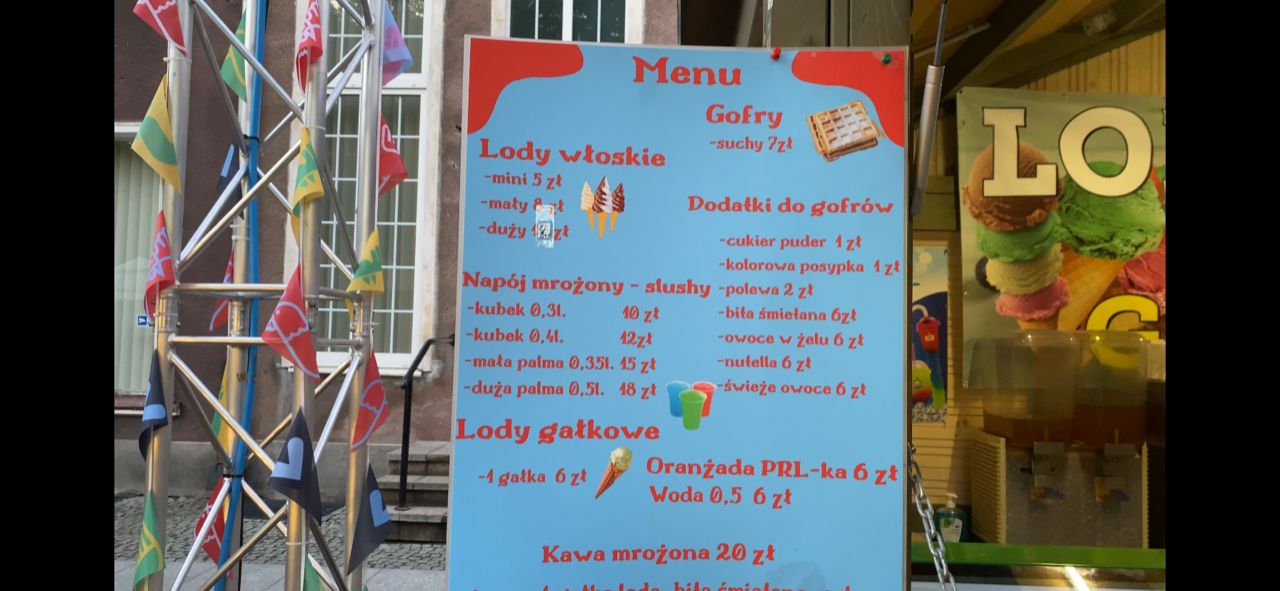 Menu
Gofry
-suchy 7zł
Lody włoskie
-mini 5 zł
-mały 8 zł
-duży zł
Dodatki do gofrów
-cukier puder 1 zł
-kolorowa posypka 1 zł
-polewa 2 zł
-biła śmiełana 6zł
-owoce w żelu 6 zł
-nutella 6 zł
-świeże owoce 6 zł
Napój mrożony - slushy
-kubek 0,3l. 10 zł
-kubek 0,4l. 12zł
-mała palma 0,35l. 15 zł
-duża palma 0,5l. 18 zł
Lody gałkowe
-1 gałka 6 zł
Oranżada PRL-ka 6 zł
Woda 0,5 6 zł
Kawa mrożona 20 zł
LO